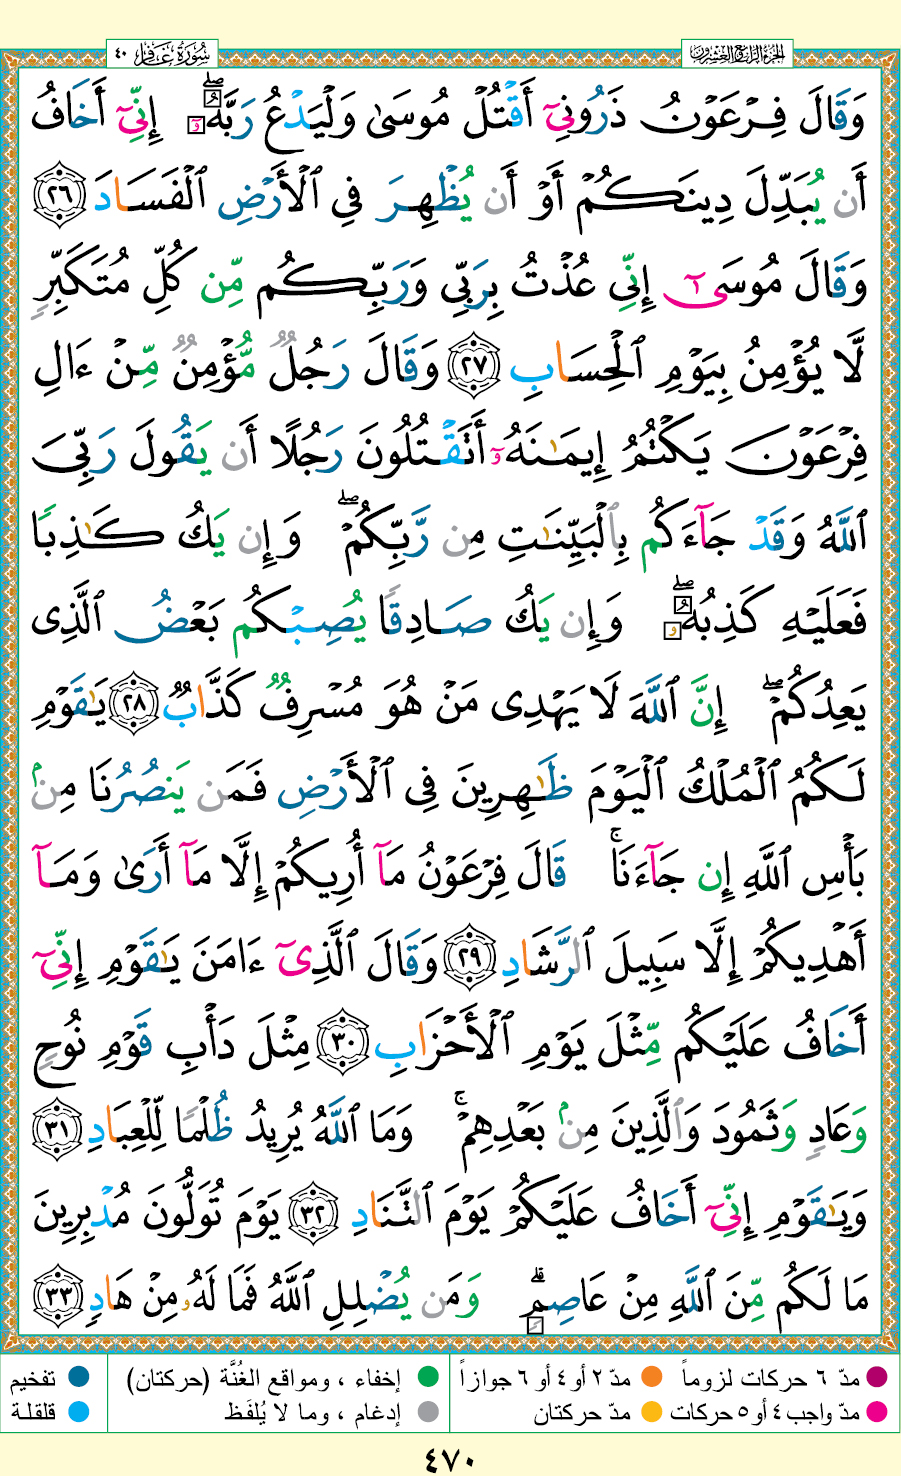 سُورَةُ غَافِرٍ ٤٠
الجُزءُ الرَّابِعُ وَالعِشرُونَ
وَقَالَ فِرْعَوْنُ ذَرُونِىٓ أَقْتُلْ مُوسَىٰ وَلْيَدْعُ رَبَّهُۥٓ ۖ إِنِّىٓ أَخَافُ
أَن يُبَدِّلَ دِينَكُمْ أَوْ أَن يُظْهِرَ فِى ٱلْأَرْضِ ٱلْفَسَادَ ٢٦
وَقَالَ مُوسَىٰٓ إِنِّى عُذْتُ بِرَبِّى وَرَبِّكُم مِّن كُلِّ مُتَكَبِّرٍ
لَّا يُؤْمِنُ بِيَوْمِ ٱلْحِسَابِ ٢٧ وَقَالَ رَجُلٌ مُّؤْمِنٌ مِّنْ ءَالِ
فِرْعَوْنَ يَكْتُمُ إِيمَـٰنَهُۥٓ أَتَقْتُلُونَ رَجُلًا أَن يَقُولَ رَبِّىَ
ٱللَّهُ وَقَدْ جَآءَكُم بِٱلْبَيِّنَـٰتِ مِن رَّبِّكُمْ ۖ وَإِن يَكُ كَـٰذِبًا
فَعَلَيْهِ كَذِبُهُۥ ۖ وَإِن يَكُ صَادِقًا يُصِبْكُم بَعْضُ ٱلَّذِى
يَعِدُكُمْ ۖ إِنَّ ٱللَّهَ لَا يَهْدِى مَنْ هُوَ مُسْرِفٌ كَذَّابٌ ٢٨ يَـٰقَوْمِ
لَكُمُ ٱلْمُلْكُ ٱلْيَوْمَ ظَـٰهِرِينَ فِى ٱلْأَرْضِ فَمَن يَنصُرُنَا مِنۢ
بَأْسِ ٱللَّهِ إِن جَآءَنَا ۚ قَالَ فِرْعَوْنُ مَآ أُرِيكُمْ إِلَّا مَآ أَرَىٰ وَمَآ
أَهْدِيكُمْ إِلَّا سَبِيلَ ٱلرَّشَادِ ٢٩ وَقَالَ ٱلَّذِىٓ ءَامَنَ يَـٰقَوْمِ إِنِّىٓ
أَخَافُ عَلَيْكُم مِّثْلَ يَوْمِ ٱلْأَحْزَابِ ٣٠ مِثْلَ دَأْبِ قَوْمِ نُوحٍ
وَعَادٍ وَثَمُودَ وَٱلَّذِينَ مِنۢ بَعْدِهِمْ ۚ وَمَا ٱللَّهُ يُرِيدُ ظُلْمًا لِّلْعِبَادِ ٣١
وَيَـٰقَوْمِ إِنِّىٓ أَخَافُ عَلَيْكُمْ يَوْمَ ٱلتَّنَادِ ٣٢ يَوْمَ تُوَلُّونَ مُدْبِرِينَ
مَا لَكُم مِّنَ ٱللَّهِ مِنْ عَاصِمٍ ۗ وَمَن يُضْلِلِ ٱللَّهُ فَمَا لَهُۥ مِنْ هَادٍ ٣٣
مدّ ٦ حركات لزوماً مدّ ٢ أو ٤ أو ٦ جوازاً إخفاء ، ومواقع الغُنَّة (حركتان) تفخيم
مدّ واجب ٤ أو ٥ حركات مدّ حركتان إدغام ، وما لا يُلفَظ قلقلة
٤٧٠